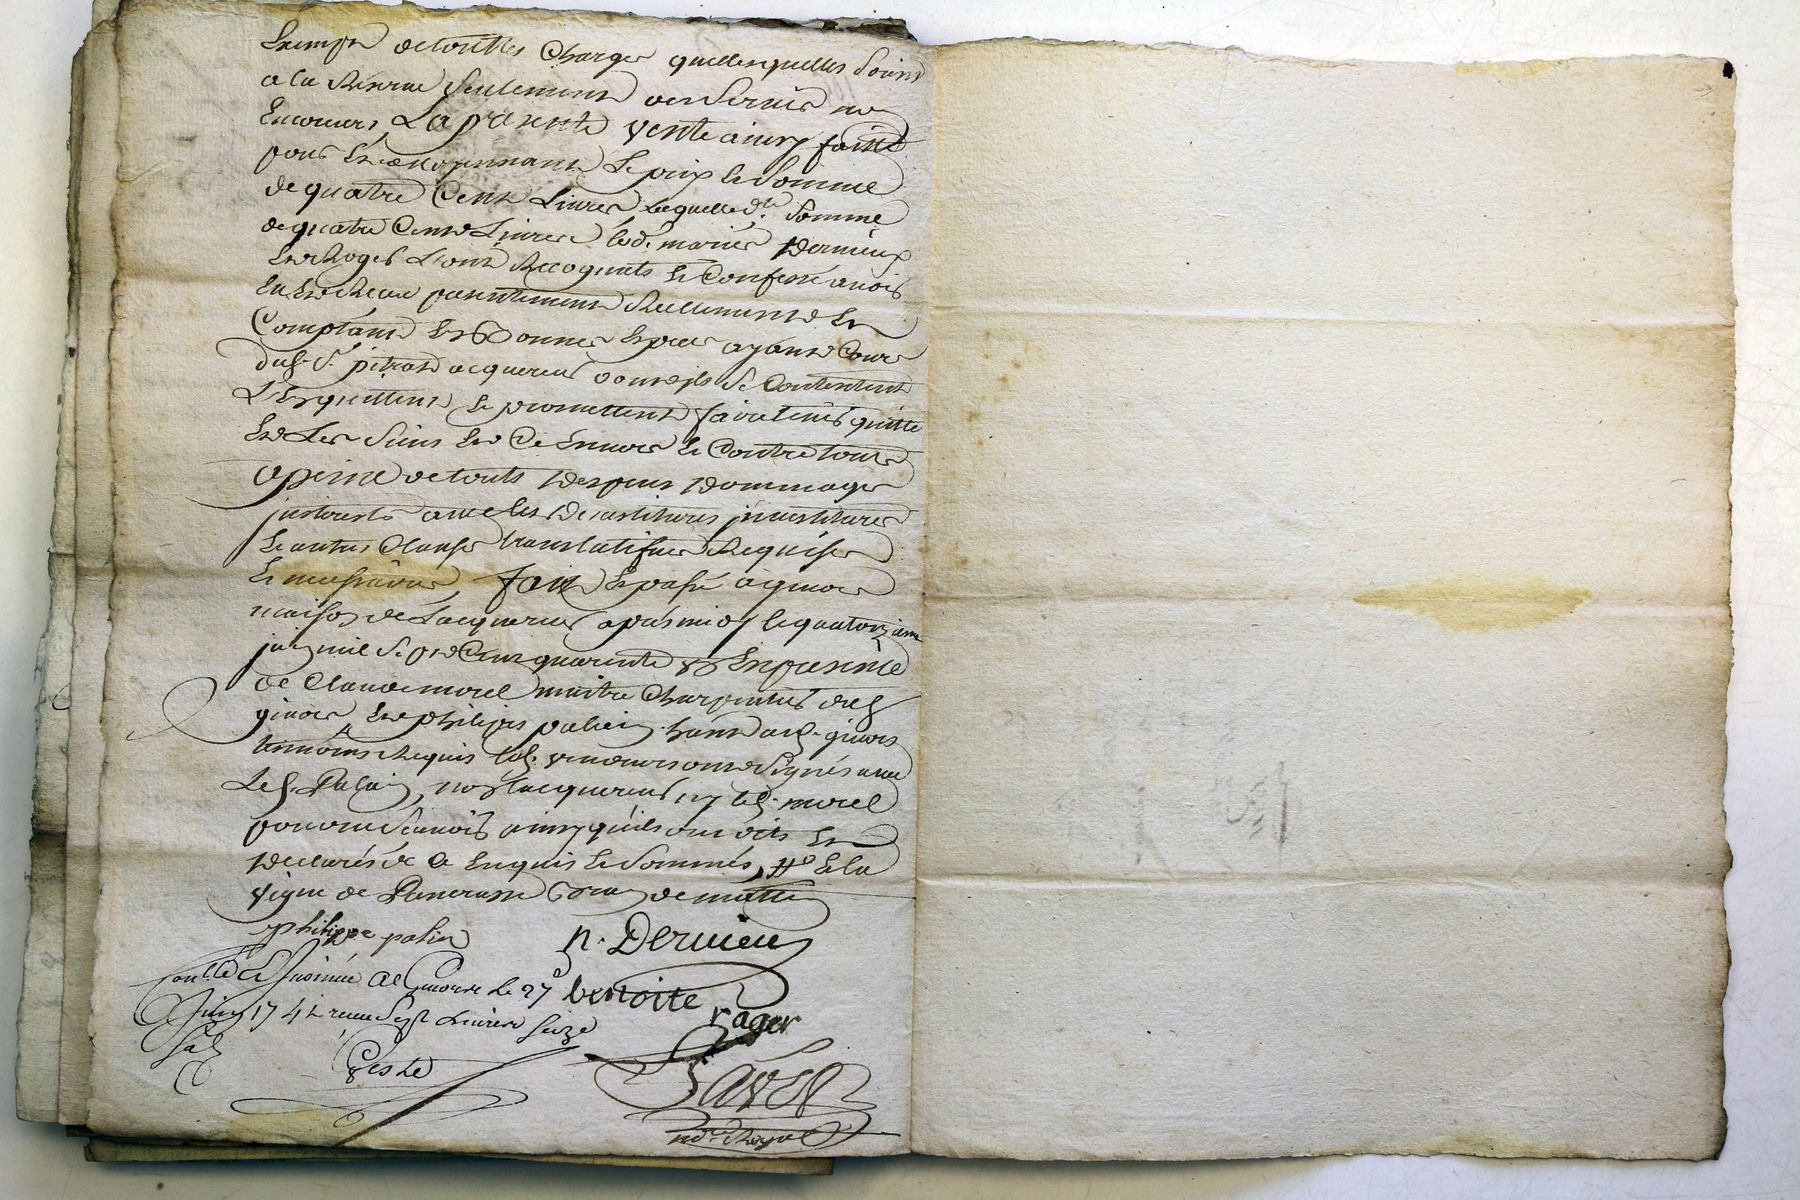 Exempt de touttes Charges quelle squelles Soient
a la Reserve Seulement des Servis non
Encourus, La presente vente ainsy faitte
pour Et moyennant Le prix Et Somme
de quatre Cent Livres Laquelle d.te Somme
de quatre Cent Livres lesd. mariés Dervieux
Et Roger L'ont Recognuts Et Confessé avoir
Eu Et Receu presentement Reellement Et
Comptant En Bonnes Especes ayant Cours
dud. S.r pitrat acquereur dont ils Se Contentent
L'En quittent Et promettent faire tenir quitte
Et Les Siens Et Ce Envers Et Contre tous
a peine de touts Despens Dommages
jnterests avec les Devestitures jnvestitures
Et autres Clauses translatifves Requises
Et necessaires, fait Et passé a givors
maison de L'acquereur apres midy le quatorzieme
juin mil Sept Cent quarente & En presence
de Claude morel maitre Charpentier dud.
givors Et philippe palien habt aud. givors
temoins Requis lesd. vendeurs ont Signés avec
Led. Palain, non l'acquereur ny led. morel
pour ne Scavoir ainsy qu'ils ont dits Et
Declarés de ce Enquis Et Sommés, Et la
vigne de de matte
philippe palin n. Dervieu
Con.llé Et Insinué a Givors Le 27e benoite rager
Juin 1741 receu Sept Livres Seize
Sols
Geste Favet
No.re Royal